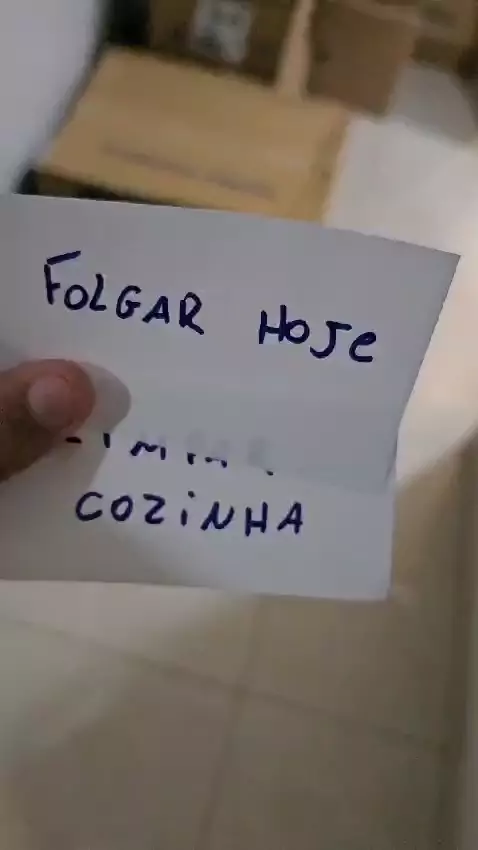 FOLGAR HOJE
COZINHA